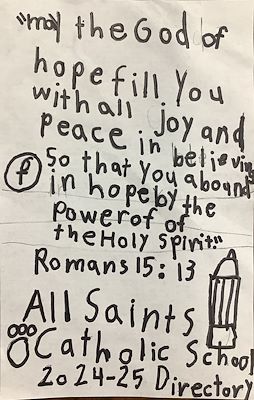 "may the God of
hope fill You
with all joy and
peace in believing
f So that you abound
in hope by the
Power of of
the Holy Spirit."
Romans 15:13
All Saints
Catholic School
2024-25 Directory